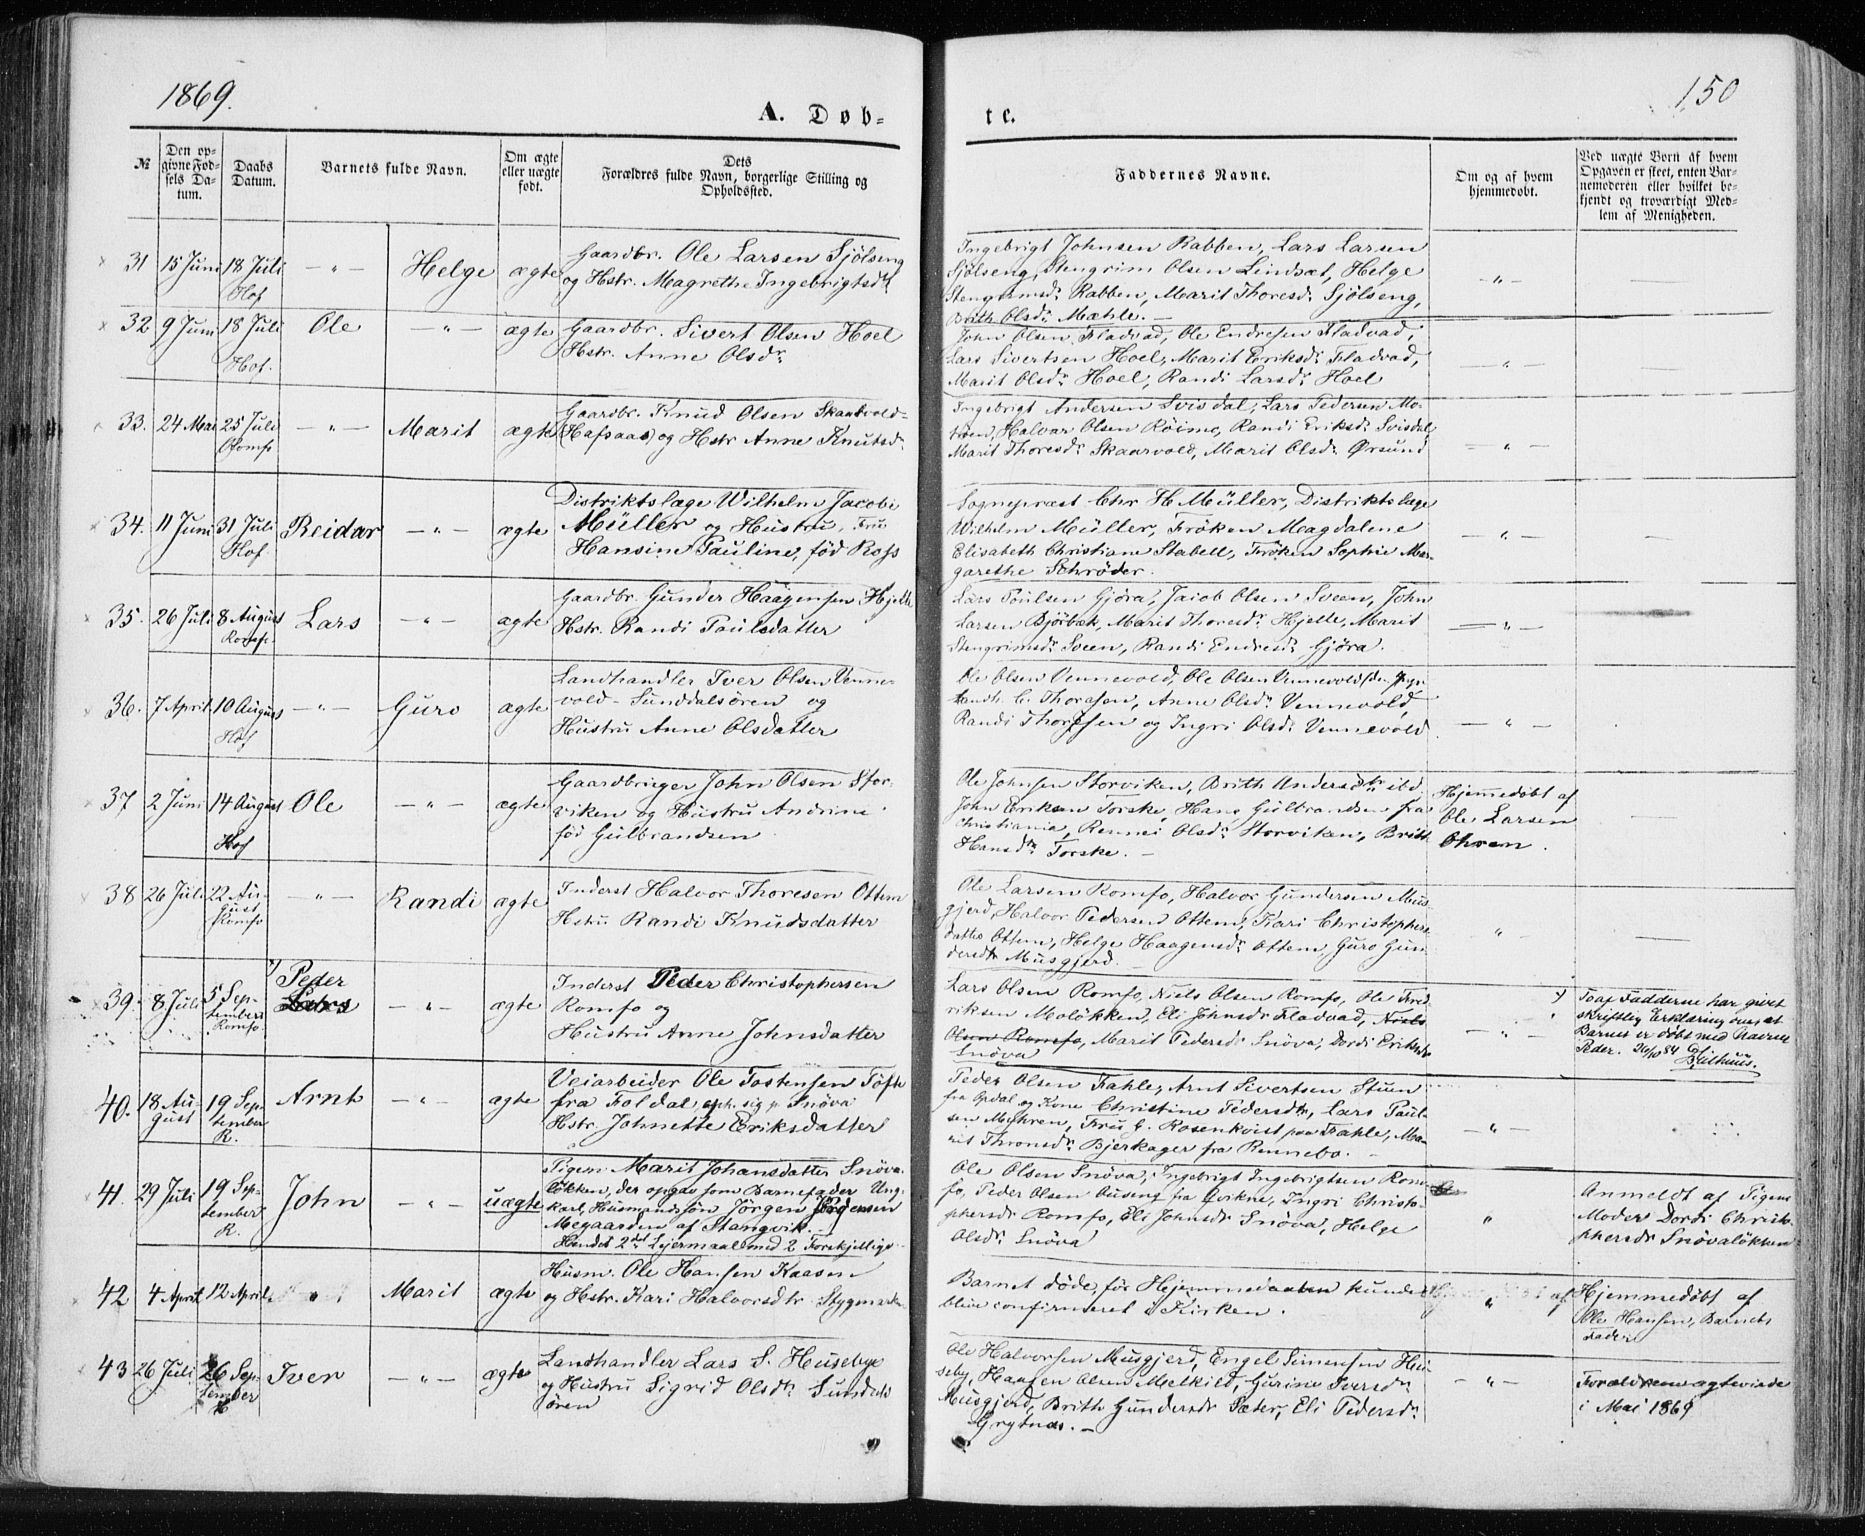 1869.
150
A. Døb-
te.
№
Den op-
givne Fød-
sels Da-
tum.
Daabs
Datum.
Barnets fulde Navn.
Om ægte
eller uægte
født.
Dets
Forældres fulde Navn, borgerlige Stilling og
Opholdssted.
Faddernes Navne.
Om og af hvem
hjemmedøbt.
Ved uægte Børn af hvem
Opgaven er skeet, enten Bar-
nemoderen eller hvilket be-
kjendt og troværdigt Med-
lem af Menigheden.
31 15 Juni 18 Juli Hof — " — Helge ægte
Gaardbr. Ole Larsen Sjölseng
og Hstr. Magrethe Ingebrigtsdr
Ingebrigt Johnsen Rabben, Lars Larsen
Sjölseng, Stengrim Olsen Lindsæt, Helge
Stengrimsdr Rabben, Marit Thoresdr Sjölseng,
Brith Olsdr Mæhle. —
32 9 Juni 18 Juli Hof. Ole — " — ægte
Gaardbr. Sivert Olsen Hoel
Hstr. Anne Olsdr
John Olsen Fladvad, Ole Endresen Fladvad,
Lars Sivertsen Hoel, Marit Eriksdr Fladvad,
Marit Olsdr Hoel, Randi Larsdr Hoel
33. 24 Mai 25 Juli Romfo — " — Marit ægte
Gaardbr. Knud Olsen Skaarvold-
(Hafsaas) og Hstr Anne Knutsdr
Ingebrigt Andersen Svisdal, Lars Pedersen Mo-
Halvar Olsen Röimo, Randi Eriksdr Svisdal,
Marit Thoresdr Skaarvold, Marit Olsdr Ørsund
34. 11 Juni 31 Juli Hof Reidar — " — ægte
Distriktslæge Wilhelm Jacobi
Müller og Hustru, Fru
Hansine Pauline, föd Ross
Sognepræst Chr H. Müller, Distriktslæge
Wilhelm Müller, Fröken Magdalene
Elisabeth Christiane Stabell, Fröken Sophie Mar-
garethe Schröder.
35. 26 Juli 8 August Romfo. Lars — " — ægte
Gaardbr. Gunder Haagensen Hjelle
Hstr. Randi Paulsdatter
Lars Poulsen Gjöra, Jacob Olsen Sveen, John
Larsen Björbæk, Marit Thoresdr Hjelle, Marit
Stengrimsdr Sveen, Randi Endresdr Gjöra.
36. 7 April 10 August Hof — " — Guro ægte
Landhandler Iver Olsen Venne-
vold - Sunddalsören og
Hustru Anne Olsdatter
Ole Olsen Vennevold, Ole Olsen Vennevold (den yngr
Landh. C. Thoresen, Anne Olsdr Vennevold,
Randi Thoresen og Ingri Olsdr Vennevold
37 2 Juni 14 August Hof Ole — " — ægte
Gaardbruger John Olsen Stor-
viken og Hustru Andrine
föd Gulbrandsen
Ole Johnsen Storviken, Brith Andersdtr ibd.
John Eriksen Torske, Hans Gulbrandsen fra
Christiania, Rennei Olsdr Storviken, Brith
Hansdtr Torske. —
Hjemmedöbt af
Ole Larsen
Ohren.
38 26 Juli 22 Au-
gust
Romfo — " — Randi ægte
Inderst Halvor Thoresen Ottem
Hstru Randi Knudsdatter
Ole Larsen Romfo, Halvor Gundersen Mus-
gjerd, Halvor Pedersen Ottem, Kari Christophers
datter Ottem, Helge Haagensdr Ottem, Guro Gun-
dersdtr Musgjerd. —
39. 8 Juli 5 Sep-
tember
Romfo. Peder
Lars — " — ægte
Inderst Peder Christophersen
Romfo og
Hustru Anne Johnsdatter
Lars Olsen Romfo, Niels Olsen Romfo, Ole Fred-
riksen Molökken, Eli Johnsdr Fladvad, Niels
Olsen Romfo, Marit Pedersdr Snöva, Dordi Eriksdr
Snöva
Toaf Fadderne har givet
skriftlig Erklæring over at
Barnet er döbt med Navnet
Peder.
40. 18 Au-
gust 19 Sep-
tember
R. Arnt — " — ægte
Veiarbeider Ole Tostensen Tofte
fra Foldal, oph. sig p. Snöva
Hstr. Johnette Eriksdatter
Peder Olsen Fahle, Arnt Sivertsen Stuen
fra Opdal og Kone Christine Pedersdtr, Lars Paul-
sen Myhren, Fru C. Rosenkvist paa Fahle, Ma-
rit Thronsdr Bjerkager fra Rennebo.
41. 29 Juli 19 Sep-
tember
R. John — " — uægte
Pigen Marit Johansdatter Snöva-
lökken, der opgav som Barnefader Ung-
karl, Husmandssön Jörgen Jörgensen
Megaarden af Stangvik. —
Hendes 2det Leiermaal med 2 Forskjellige
Ole Olsen Snöva, Ingebrigt Ingebrigtsen Rom-
fo, Peder Olsen Ouseng fra Qvikne, Ingri Christo-
phersdr Romfo, Eli Johnsdr Snöva, Helge
Olsdr Snöva
Anmeldt af Pigens
Moder Dordi Christo-
phersdr Snövalökken
42 4 April 12 April " Marit ægte
Husm. Ole Hansen Kaasen
og Hstr. Kari Halvorsdtr
Barnet döde, för Hjemmedaaben kunde
blive confirmeret i Kirken.
Hjemmedöbt af
Ole Hansen, Barnets
Fader
43 26 Juli 26 Sep-
tember Iver — " — ægte
Landhandler Lars S. Husebye
og Hustru Sigrid Olsdtr Sundals
ören
Ole Halvorsen Musgjerd, Engel Simensen Hu-
seby, Haagen Olsen Melkild, Gurine Iversdr
Musgjerd, Brith Gundersdr Sæter, Eli Pedersdr
Grytnes. —
Forældrene ægteviede
i Mai 1869